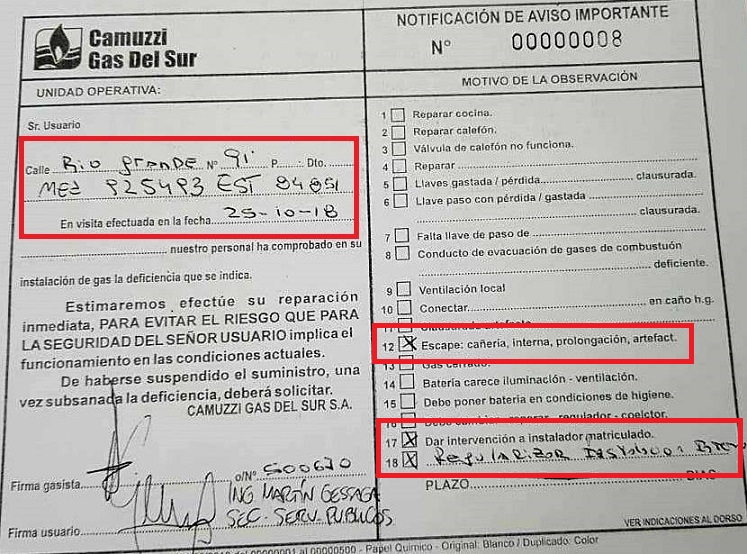 Camuzzi
Gas Del Sur
UNIDAD OPERATIVA:
Sr. Usuario
Calle Rio grande N° 91 P....... Dto.
MED 925493 EST 84051
En visita efectuada en la fecha 25-10-18
nuestro personal ha comprobado en su
instalación de gas la deficiencia que se indica.
Estimaremos efectúe su reparación
inmediata, PARA EVITAR EL RIESGO QUE PARA
LA SEGURIDAD DEL SEÑOR USUARIO implica el
funcionamiento en las condiciones actuales.
De haberse suspendido el suministro, una
vez subsanada la deficiencia, deberá solicitar.
CAMUZZI GAS DEL SUR S.A.
Firma gasista o/N° 500670
ING MARTÍN GESSAGA
SEC. SERV. PUBLICOS
Firma usuario
NOTIFICACIÓN DE AVISO IMPORTANTE
N° 00000008
MOTIVO DE LA OBSERVACIÓN
1 Reparar cocina.
2 Reparar calefón.
3 Válvula de calefón no funciona.
4 Reparar
5 Llaves gastada / pérdida clausurada.
6 Llave paso con pérdida / gastada
clausurada.
7 Falta llave de paso de
8 Conducto de evacuación de gases de combustuón
deficiente.
9 Ventilación local
10 Conectar en caño h.g.
11
12 X Escape: cañeria, interna, prolongación, artefact.
13 Gas cerrado.
14 Bateria carece iluminación - ventilación.
15 Debo poner bateria en condiciones de higiene.
16 regulador - coelctor.
17 X Dar intervención a instalador matriculado.
18 X Regularizar
PLAZO DIAS
VER INDICACIONES AL DORSO
al 00000500 - Papel Quimico - Original: Blanco / Duplicado: Color